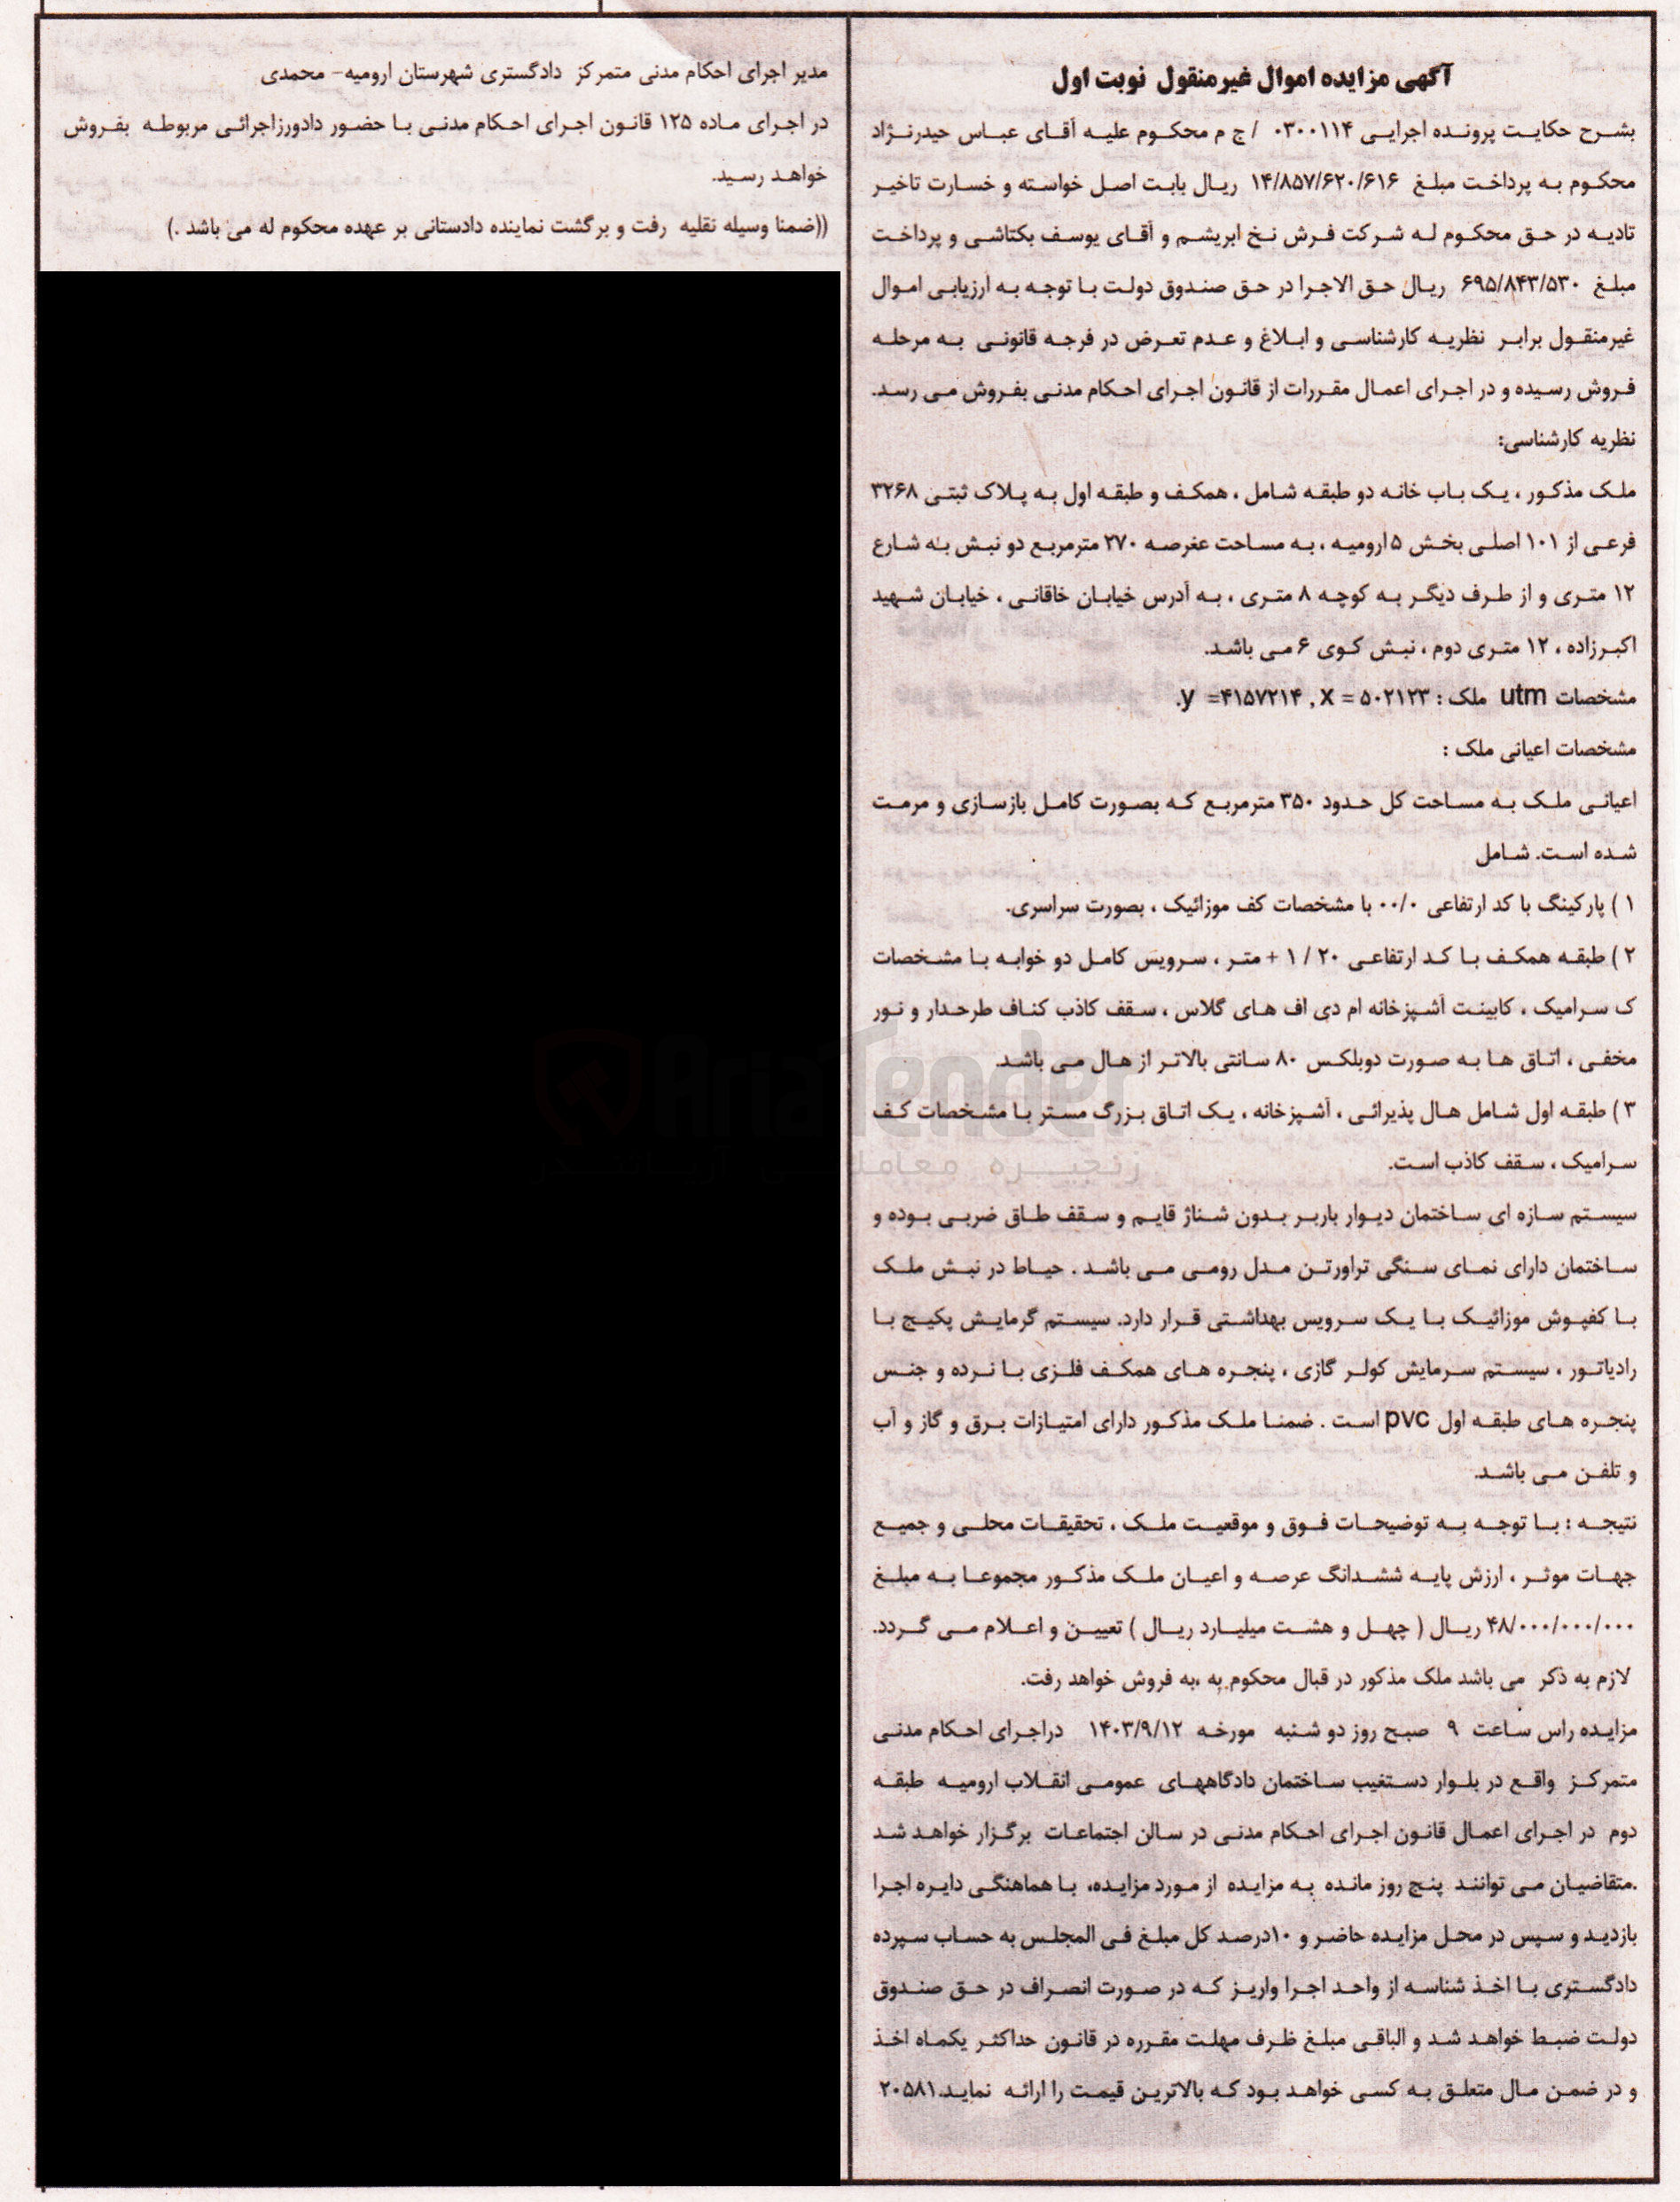 آگهی مزایده اموال غیرمنقول نوبت اول
بشرح حکایت پرونده اجرایی ۰۳۰۰۱۱۴ / ج م محکوم علیه آقای عباس حیدرنژاد
محکوم به پرداخت مبلغ ۱۴/۸۵۷/۶۲۰/۶۱۶ ریال بابت اصل خواسته و خسارت تاخیر
تادیه در حق محکوم له شرکت فرش نخ ابریشم و آقای یوسف بکتاشی و پرداخت
مبلغ ۶۹۵/۸۴۳/۵۳۰ ریال حق الاجرا در حق صندوق دولت با توجه به ارزیابی اموال
غیرمنقول برابر نظریه کارشناسی و ابلاغ و عدم تعرض در فرجه قانونی به مرحله
فروش رسیده و در اجرای اعمال مقررات از قانون اجرای احکام مدنی بفروش می رسد.
نظریه کارشناسی:
ملک مذکور ، یک باب خانه دو طبقه شامل ، همکف و طبقه اول به پلاک ثبتی ۳۲۶۸
فرعی از ۱۰۱ اصلی بخش ۵ ارومیه ، به مساحت عغرصه ۲۷۰ مترمربع دو نبش به شارع
۱۲ متری و از طرف دیگر به کوچه ۸ متری ، به آدرس خیابان خاقانی ، خیابان شهید
اکبرزاده ، ۱۲ متری دوم ، نبش کوی ۶ می باشد.
مشخصات utm ملک : ۵۰۲۱۲۳ = x , ۴۱۵۷۲۱۴= y.
مشخصات اعیانی ملک :
اعیانی ملک به مساحت کل حدود ۳۵۰ مترمربع که بصورت کامل بازسازی و مرمت
شده است. شامل
۱ ) پارکینگ با کد ارتفاعی ۰۰/۰ با مشخصات کف موزائیک ، بصورت سراسری.
۲ ) طبقه همکف با کد ارتفاعی ۲۰ / ۱ + متر ، سرویس کامل دو خوابه با مشخصات
ک سرامیک ، کابینت آشپزخانه ام دی اف های گلاس ، سقف کاذب کناف طرحدار و نور
مخفی ، اتاق ها به صورت دوبلکس ۸۰ سانتی بالاتر از هال می باشد.
۳ ) طبقه اول شامل هال پذیرائی ، آشپزخانه ، یک اتاق بزرگ مستر با مشخصات کف
سرامیک ، سقف کاذب است.
سیستم سازه ای ساختمان دیوار باربر بدون شناژ قایم و سقف طاق ضربی بوده و
ساختمان دارای نمای سنگی تراورتن مدل رومی می باشد . حیاط در نبش ملک
با کفپوش موزائیک با یک سرویس بهداشتی قرار دارد. سیستم گرمایش پکیج با
رادیاتور ، سیستم سرمایش کولر گازی ، پنجره های همکف فلزی با نرده و جنس
پنجره های طبقه اول pvc است . ضمنا ملک مذکور دارای امتیازات برق و گاز و آب
و تلفن می باشد.
نتیجه : با توجه به توضیحات فوق و موقعیت ملک ، تحقیقات محلی و جمیع
جهات موثر ، ارزش پایه ششدانگ عرصه و اعیان ملک مذکور مجموعا به مبلغ
۴۸/۰۰۰/۰۰۰/۰۰۰ ریال ( چهل و هشت میلیارد ریال ) تعیین و اعلام می گردد.
لازم به ذکر می باشد ملک مذکور در قبال محکوم به ،به فروش خواهد رفت.
مزایده راس ساعت ۹ صبح روز دو شنبه مورخه ۱۴۰۳/۹/۱۲ دراجرای احکام مدنی
متمرکز واقع در بلوار دستغیب ساختمان دادگاههای عمومی انقلاب ارومیه طبقه
دوم در اجرای اعمال قانون اجرای احکام مدنی در سالن اجتماعات برگزار خواهد شد
.متقاضیان می توانند پنج روز مانده به مزایده از مورد مزایده، با هماهنگی دایره اجرا
بازدید و سپس در محل مزایده حاضر و ۱۰درصد کل مبلغ فی المجلس به حساب سپرده
دادگستری با اخذ شناسه از واحد اجرا واریز که در صورت انصراف در حق صندوق
دولت ضبط خواهد شد و الباقی مبلغ ظرف مهلت مقرره در قانون حداکثر یکماه اخذ
و در ضمن مال متعلق به کسی خواهد بود که بالاترین قیمت را ارائه نماید.۲۰۵۸۱
مدیر اجرای احکام مدنی متمرکز دادگستری شهرستان ارومیه- محمدی
در اجرای ماده ۱۲۵ قانون اجرای احکام مدنی با حضور دادورزاجرائی مربوطه بفروش
خواهد رسید.
((ضمنا وسیله نقلیه رفت و برگشت نماینده دادستانی بر عهده محکوم له می باشد .)
AriaTender
زنجیره معاملاتی آریاتندر